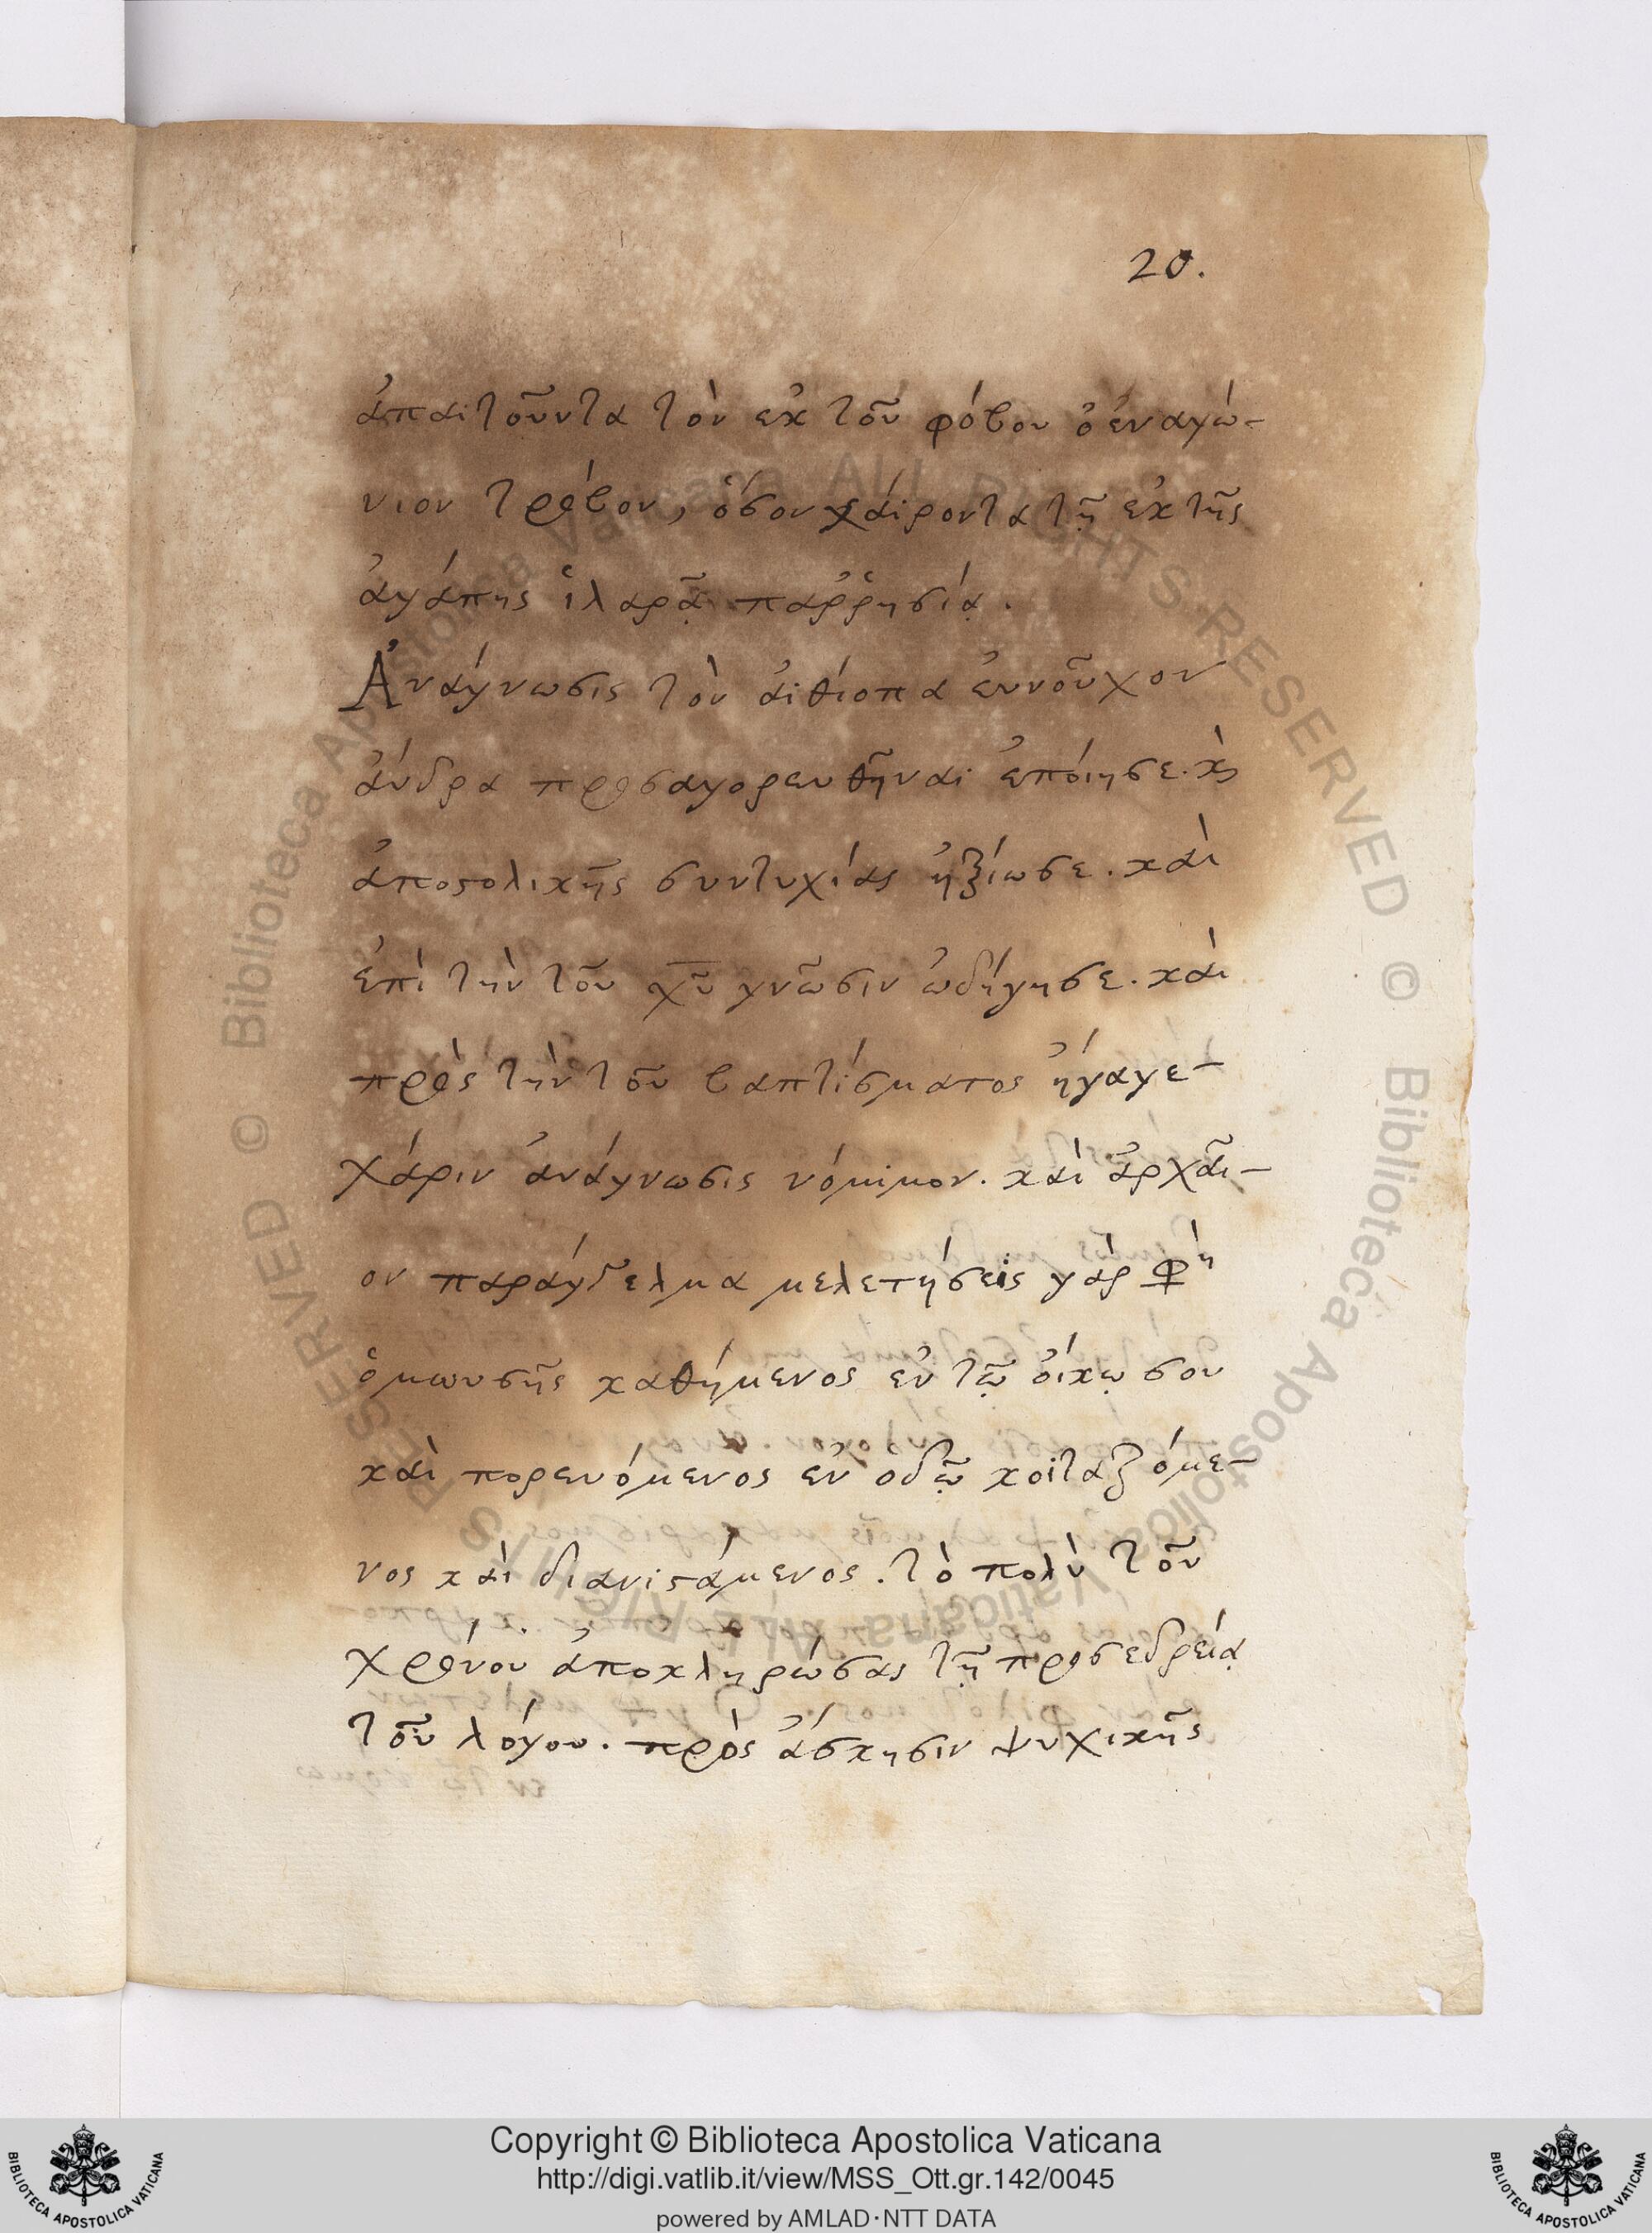 20.
ἀπαιτοῦντα τὸν ἐκ τοῦ φόβου ὁ ἐναγώ-
νιον τρόβον, ὅσον χάιροντα τῇ ἐκ τῆς
ἀγάπης ἱλαρᾷ παῤῥησίᾳ.
Ἀνάγνωσις τὸν ἀιθίοπα ἐυνοῦχον
ἄνδρα προσαγορευθῆναι ἐπόιησε. κὶ
ἀποστολικῆς συντυχίας ἠξίωσε. καὶ
ἐπὶ τὴν τοῦ χῦ γνῶσιν ὡδήγησε. καὶ
πρὸς τὴν τοῦ βαπτίσματος ἤγαγε-
χάριν ἀνάγνωσις νόμιμον. καὶ ἀρχᾶι-
ον παράγγελμα μελετήσεις γὰρ φη
ὁ μωυσῆς καθήμενος ἐν τῷ ὄικῳ σου
καὶ πορευόμενος ἐν ὁδῷ κοιταζόμε-
νος καὶ διανιστάμενος. τὸ πολὺ τοῦ
χρόνου ἀποκληρώσας τῇ προσεδρείᾳ
τοῦ λόγου. πρὸς ἄσκησιν ψυχικῆς
Copyright © Biblioteca Apostolica Vaticana
http://digi.vatlib.it/view/MSS_Ott.gr.142/0045
powered by AMLAD·NTT DATA
BIBLIOTECA APOSTOLICA VATICANA
BIBLIOTECA APOSTOLICA VATICANA
© Biblioteca Apostolica Vaticana ALL RIGHTS RESERVED © Biblioteca Apostolica Vaticana ALL RIGHTS RESERVED